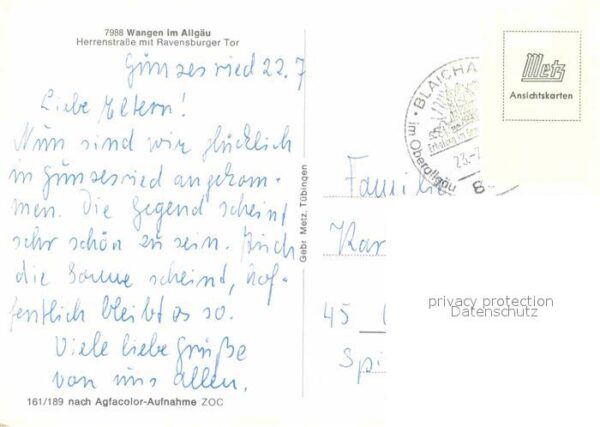 7988 Wangen im Allgäu
Herrenstraße mit Ravensburger Tor
Gunzesried 22.7
Liebe Eltern!
Nun sind wir glücklich
in Gunzesried angekom-
men. Die Gegend scheint
sehr schön zu sein. Auch
die Sonne scheint, hof-
fentlich bleibt es so.
Viele liebe Grüße
von uns allen.
161/189 nach Agfacolor-Aufnahme ZOC
Gebr. Metz, Tübingen
BLAICHA
im Oberallgäu
23.-
8-
Metz
Ansichtskarten
Familie
Kar
45
Spi
privacy protection
Datenschutz